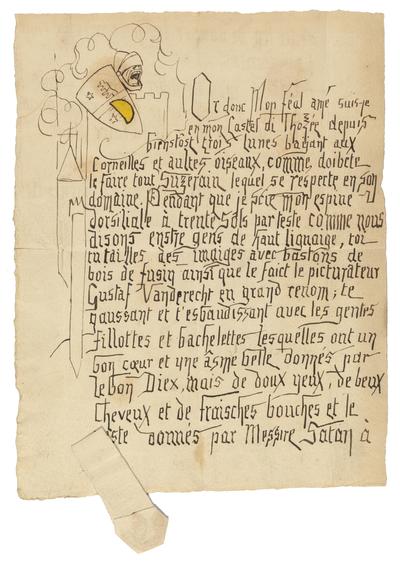 Or donc Mon féal amé suis-je
en mon Castel di Thozée depuis
bienstost trois lunes bayant aux
Corneilles et aultes oiseaux, comme doibt
le faire tout Suzerain lequel se respecte en son
domaine. Pendant que je scie mon espine
dorsiliale à trente sols par teste comme nous
disons enstre gens de haut lignaige, toi
tu tailles des imaiges avec bastons de
bois de fusin ainsi que le faict le picturateur
Gustaf Vanderecht en grand renom; te
gaussant et t'esbaudissant avec les gentes
fillottes et bachelettes lesquelles ont un
bon cœur et une âsme belle donnés par
le bon Diex, mais de doux yeux, de beux
Cheveux et de fraisches bouches et le
donnés par Messire Satan à